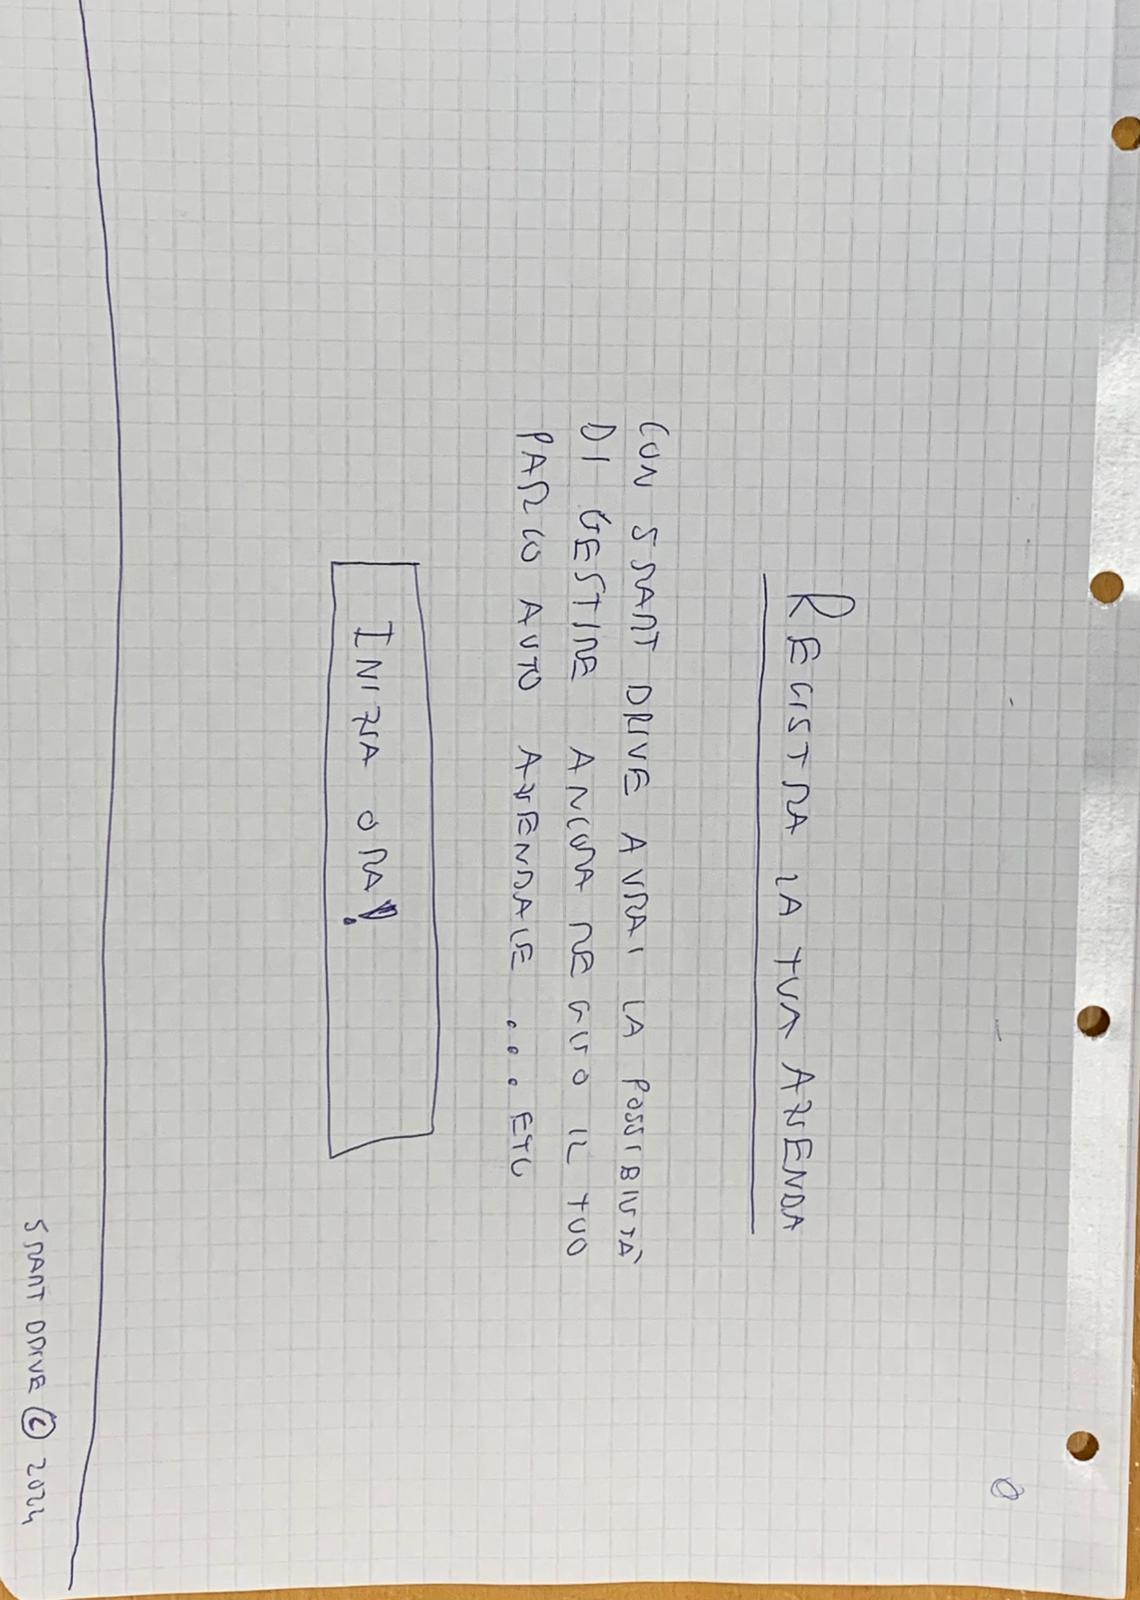 0
REGISTRA LA TUA AZIENDA
CON SMART DRIVE AVRAI LA POSSIBILITÀ
DI GESTIRE ANCORA MEGLIO IL TUO
PARCO AUTO AZIENDALE ... ETC
INIZIA ORA!
SMART DRIVE © 2024